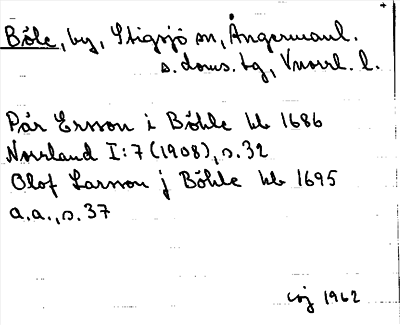 Böle, by, Stigsjö sn, Ångermanl.
s. doms. tg, Vnorrl. l.
Pär Ersson i Böhle kb 1686
Norrland I:7 (1908), s. 32
Olof Larsson j Böhle kb 1695
a.a., s. 37
1962